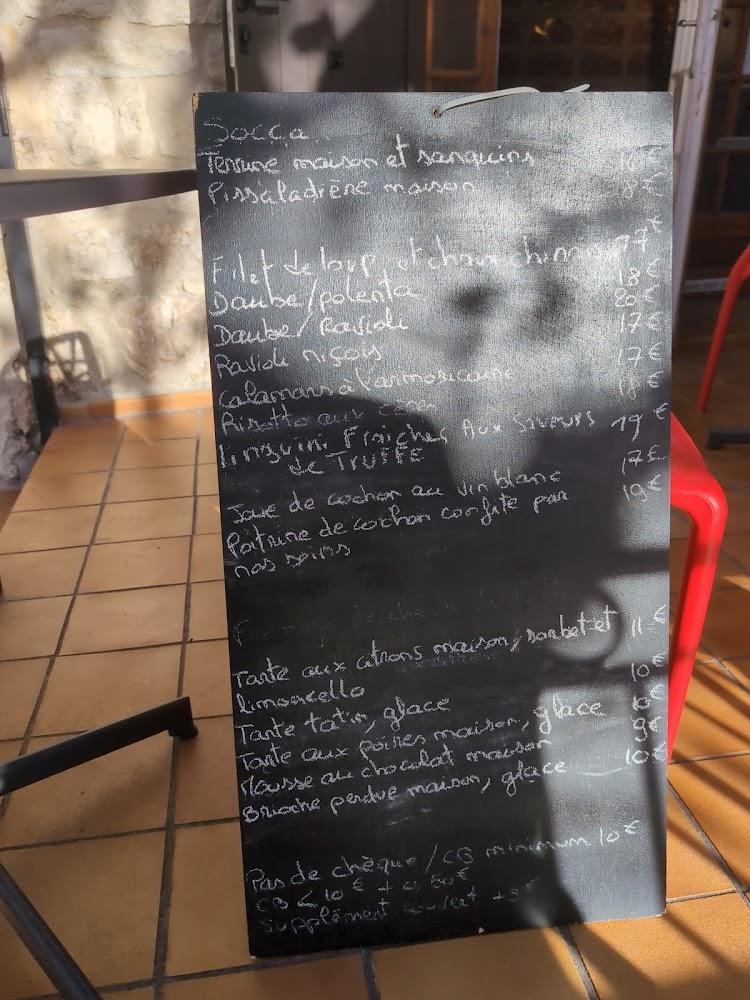 Socca
Terrine maison et sanguins
Pissaladière maison 8€
Filet de loup et chou
Daube/polenta 18€
Daube/Ravioli 20€
Ravioli niçois 17€
calamars à l'armoricaine 17€
Risotto aux 18€
linguini Fraîches Aux Saveurs 19€
de TRUFFE
Joue de cochon au vin blanc 17€
Poitrine de cochon confite par 19€
nos soins
Tarte aux citrons maison, sorbet et 11€
limoncello
Tarte tatin, glace 10€
Tarte aux poires maison, glace 10€
Mousse au chocolat maison 9€
Brioche perdue maison, glace 10€
Pas de chèque / CB minimum 10€
CB < 10€ + 0,50€
Supplément couvert +3€